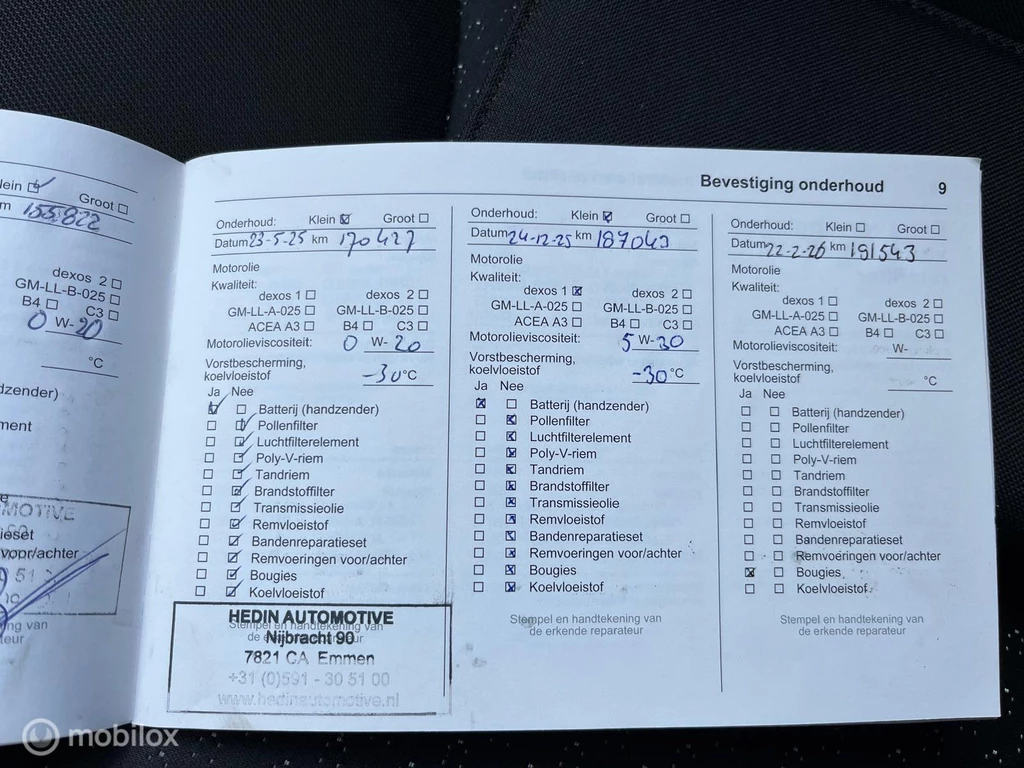 lein ☑ Groot ☐
m 155.822
dexos 2 ☐
GM-LL-B-025 ☐
B4 ☐ C3 ☐
0 W-20
°C
dzender)
ment
e
MOTIVE
ieset
voor/achter
51
ing van
teur
Bevestiging onderhoud 9
Onderhoud: Klein ☑ Groot ☐
Datum 23-5-25 km 170427
Motorolie
Kwaliteit:
dexos 1 ☐ dexos 2 ☐
GM-LL-A-025 ☐ GM-LL-B-025 ☐
ACEA A3 ☐ B4 ☐ C3 ☐
Motorolieviscositeit: 0 W-20
Vorstbescherming,
koelvloeistof -30 °C
Ja Nee
☑ ☐ Batterij (handzender)
☐ ☑ Pollenfilter
☐ ☑ Luchtfilterelement
☐ ☑ Poly-V-riem
☐ ☑ Tandriem
☐ ☑ Brandstoffilter
☐ ☑ Transmissieolie
☐ ☑ Remvloeistof
☐ ☑ Bandenreparatieset
☐ ☑ Remvoeringen voor/achter
☐ ☑ Bougies
☐ ☑ Koelvloeistof
HEDIN AUTOMOTIVE
Stempel en handtekening van
de erkende reparateur
Nijbracht 90
7821 CA Emmen
+31 (0)591 - 30 51 00
www.hedinautomotive.nl
Onderhoud: Klein ☑ Groot ☐
Datum 24-12-25 km 187043
Motorolie
Kwaliteit:
dexos 1 ☒ dexos 2 ☐
GM-LL-A-025 ☐ GM-LL-B-025 ☐
ACEA A3 ☐ B4 ☐ C3 ☐
Motorolieviscositeit: 5 W-30
Vorstbescherming,
koelvloeistof -30 °C
Ja Nee
☒ ☐ Batterij (handzender)
☐ ☒ Pollenfilter
☐ ☒ Luchtfilterelement
☐ ☒ Poly-V-riem
☐ ☒ Tandriem
☐ ☒ Brandstoffilter
☐ ☒ Transmissieolie
☐ ☒ Remvloeistof
☐ ☒ Bandenreparatieset
☐ ☒ Remvoeringen voor/achter
☐ ☒ Bougies
☐ ☒ Koelvloeistof
Stempel en handtekening van
de erkende reparateur
Onderhoud: Klein ☐ Groot ☐
Datum 22-2-26 km 191543
Motorolie
Kwaliteit:
dexos 1 ☐ dexos 2 ☐
GM-LL-A-025 ☐ GM-LL-B-025 ☐
ACEA A3 ☐ B4 ☐ C3 ☐
Motorolieviscositeit: W-
Vorstbescherming,
koelvloeistof °C
Ja Nee
☐ ☐ Batterij (handzender)
☐ ☐ Pollenfilter
☐ ☐ Luchtfilterelement
☐ ☐ Poly-V-riem
☐ ☐ Tandriem
☐ ☐ Brandstoffilter
☐ ☐ Transmissieolie
☐ ☐ Remvloeistof
☐ ☐ Bandenreparatieset
☐ ☐ Remvoeringen voor/achter
☒ ☐ Bougies
☐ ☐ Koelvloeistof
Stempel en handtekening van
de erkende reparateur
mobilox